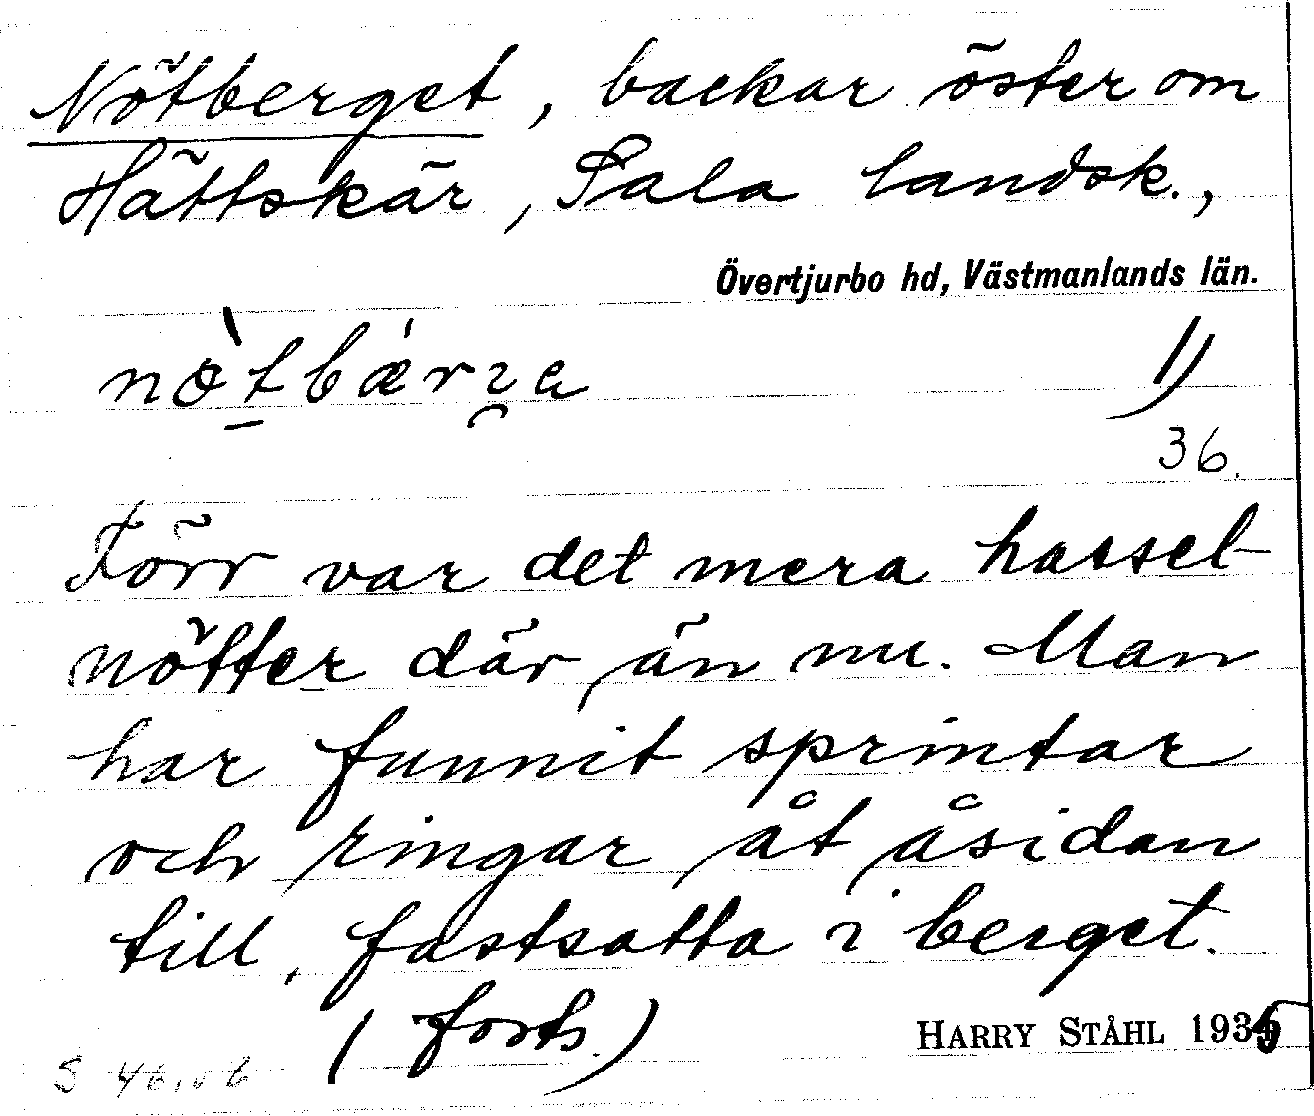 Nötberget, backar öster om
Hättskär, Sala landsk.,
Övertjurbo hd, Västmanlands län.
1)
36.
Förr var det mera hassel-
nötter där än nu. Man
har funnit sprintar
och ringar åt åsidan
till, fastsatta i berget.
(forts.)
HARRY STÅHL 1935